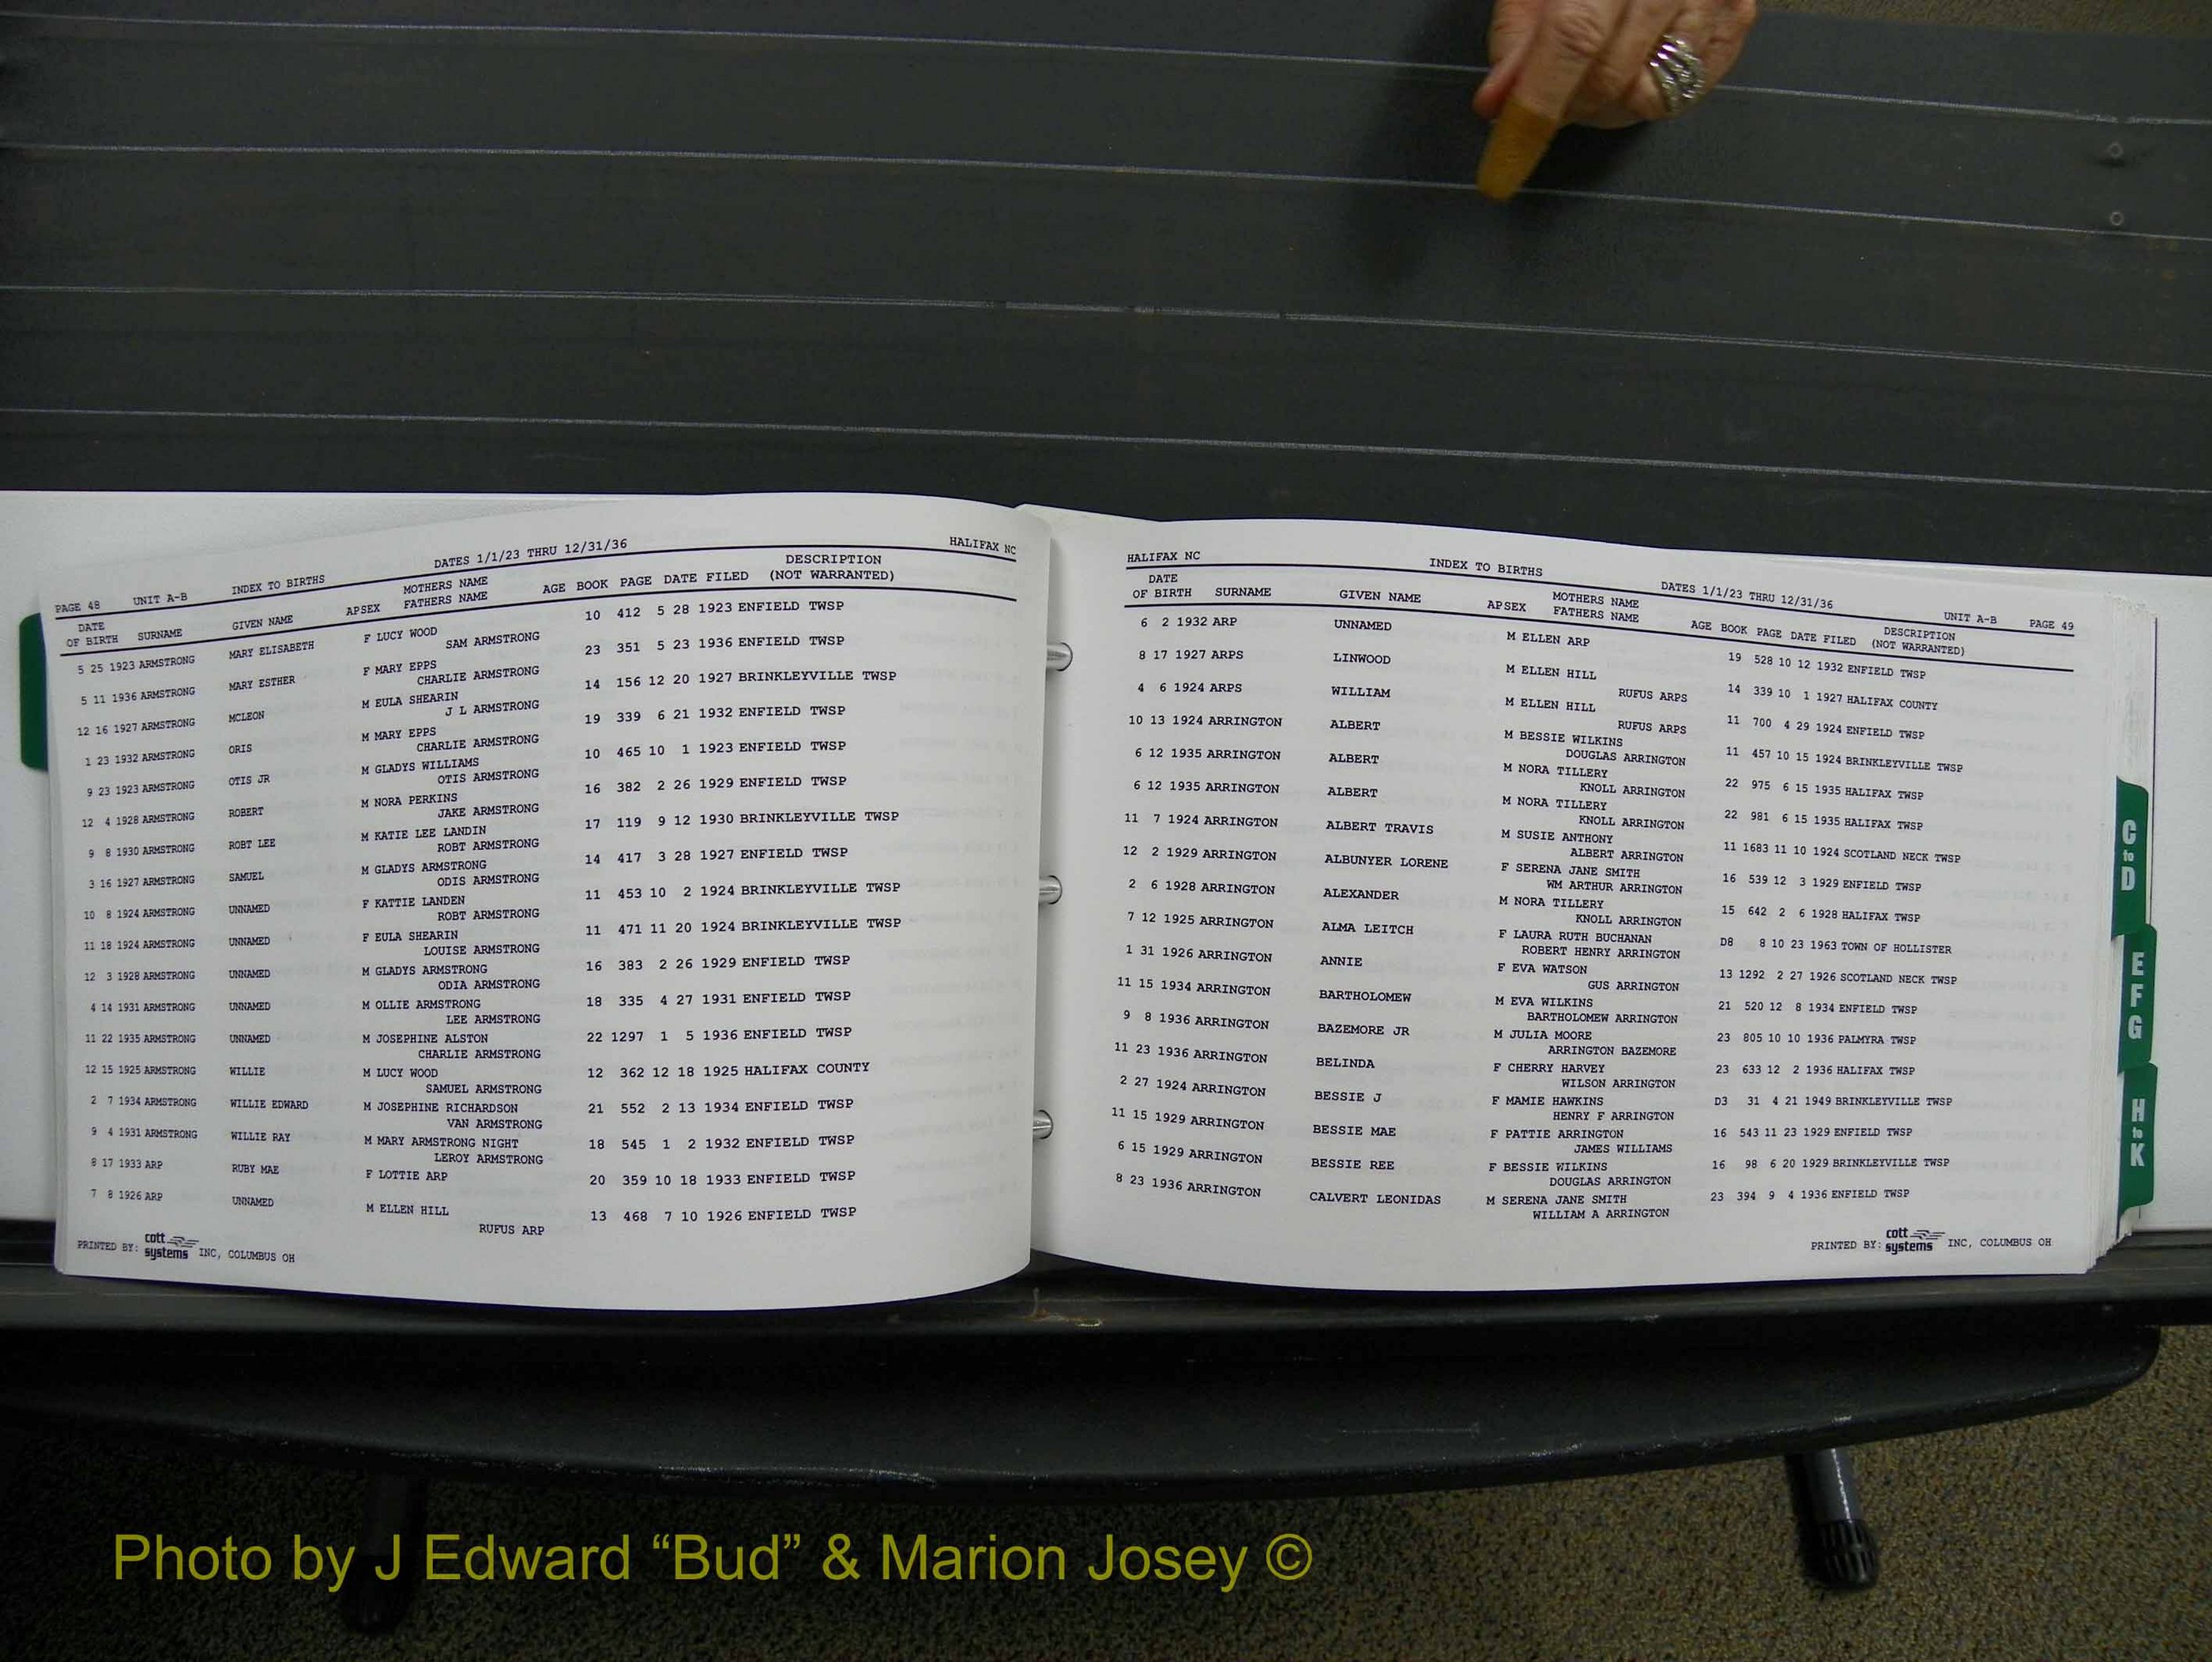 PAGE 48 UNIT A-B INDEX TO BIRTHS DATES 1/1/23 THRU 12/31/36 HALIFAX NC
DATE OF BIRTH SURNAME GIVEN NAME APSEX MOTHERS NAME FATHERS NAME AGE BOOK PAGE DATE FILED DESCRIPTION (NOT WARRANTED)
5 25 1923 ARMSTRONG MARY ELISABETH F LUCY WOOD 10 412 5 28 1923 ENFIELD TWSP
SAM ARMSTRONG
5 11 1936 ARMSTRONG MARY ESTHER F MARY EPPS 23 351 5 23 1936 ENFIELD TWSP
CHARLIE ARMSTRONG
12 16 1927 ARMSTRONG MCLEON M EULA SHEARIN 14 156 12 20 1927 BRINKLEYVILLE TWSP
J L ARMSTRONG
1 23 1932 ARMSTRONG ORIS M MARY EPPS 19 339 6 21 1932 ENFIELD TWSP
CHARLIE ARMSTRONG
9 23 1923 ARMSTRONG OTIS JR M GLADYS WILLIAMS 10 465 10 1 1923 ENFIELD TWSP
OTIS ARMSTRONG
12 4 1928 ARMSTRONG ROBERT M NORA PERKINS 16 382 2 26 1929 ENFIELD TWSP
JAKE ARMSTRONG
9 8 1930 ARMSTRONG ROBT LEE M KATIE LEE LANDIN 17 119 9 12 1930 BRINKLEYVILLE TWSP
ROBT ARMSTRONG
3 16 1927 ARMSTRONG SAMUEL M GLADYS ARMSTRONG 14 417 3 28 1927 ENFIELD TWSP
ODIS ARMSTRONG
10 8 1924 ARMSTRONG UNNAMED F KATTIE LANDEN 11 453 10 2 1924 BRINKLEYVILLE TWSP
ROBT ARMSTRONG
11 18 1924 ARMSTRONG UNNAMED F EULA SHEARIN 11 471 11 20 1924 BRINKLEYVILLE TWSP
LOUISE ARMSTRONG
12 3 1928 ARMSTRONG UNNAMED M GLADYS ARMSTRONG 16 383 2 26 1929 ENFIELD TWSP
ODIA ARMSTRONG
4 14 1931 ARMSTRONG UNNAMED M OLLIE ARMSTRONG 18 335 4 27 1931 ENFIELD TWSP
LEE ARMSTRONG
11 22 1935 ARMSTRONG UNNAMED M JOSEPHINE ALSTON 22 1297 1 5 1936 ENFIELD TWSP
CHARLIE ARMSTRONG
12 15 1925 ARMSTRONG WILLIE M LUCY WOOD 12 362 12 18 1925 HALIFAX COUNTY
SAMUEL ARMSTRONG
2 7 1934 ARMSTRONG WILLIE EDWARD M JOSEPHINE RICHARDSON 21 552 2 13 1934 ENFIELD TWSP
VAN ARMSTRONG
9 4 1931 ARMSTRONG WILLIE RAY M MARY ARMSTRONG NIGHT 18 545 1 2 1932 ENFIELD TWSP
LEROY ARMSTRONG
8 17 1933 ARP RUBY MAE F LOTTIE ARP 20 359 10 18 1933 ENFIELD TWSP
7 8 1926 ARP UNNAMED M ELLEN HILL 13 468 7 10 1926 ENFIELD TWSP
RUFUS ARP
PRINTED BY: cott systems INC, COLUMBUS OH
HALIFAX NC INDEX TO BIRTHS DATES 1/1/23 THRU 12/31/36 UNIT A-B PAGE 49
DATE OF BIRTH SURNAME GIVEN NAME APSEX MOTHERS NAME FATHERS NAME AGE BOOK PAGE DATE FILED DESCRIPTION (NOT WARRANTED)
6 2 1932 ARP UNNAMED M ELLEN ARP 19 528 10 12 1932 ENFIELD TWSP
8 17 1927 ARPS LINWOOD M ELLEN HILL 14 339 10 1 1927 HALIFAX COUNTY
RUFUS ARPS
4 6 1924 ARPS WILLIAM M ELLEN HILL 11 700 4 29 1924 ENFIELD TWSP
RUFUS ARPS
10 13 1924 ARRINGTON ALBERT M BESSIE WILKINS 11 457 10 15 1924 BRINKLEYVILLE TWSP
DOUGLAS ARRINGTON
6 12 1935 ARRINGTON ALBERT M NORA TILLERY 22 975 6 15 1935 HALIFAX TWSP
KNOLL ARRINGTON
6 12 1935 ARRINGTON ALBERT M NORA TILLERY 22 981 6 15 1935 HALIFAX TWSP
KNOLL ARRINGTON
11 7 1924 ARRINGTON ALBERT TRAVIS M SUSIE ANTHONY 11 1683 11 10 1924 SCOTLAND NECK TWSP
ALBERT ARRINGTON
12 2 1929 ARRINGTON ALBUNYER LORENE F SERENA JANE SMITH 16 539 12 3 1929 ENFIELD TWSP
WM ARTHUR ARRINGTON
2 6 1928 ARRINGTON ALEXANDER M NORA TILLERY 15 642 2 6 1928 HALIFAX TWSP
KNOLL ARRINGTON
7 12 1925 ARRINGTON ALMA LEITCH F LAURA RUTH BUCHANAN D8 8 10 23 1963 TOWN OF HOLLISTER
ROBERT HENRY ARRINGTON
1 31 1926 ARRINGTON ANNIE F EVA WATSON 13 1292 2 27 1926 SCOTLAND NECK TWSP
GUS ARRINGTON
11 15 1934 ARRINGTON BARTHOLOMEW M EVA WILKINS 21 520 12 8 1934 ENFIELD TWSP
BARTHOLOMEW ARRINGTON
9 8 1936 ARRINGTON BAZEMORE JR M JULIA MOORE 23 805 10 10 1936 PALMYRA TWSP
ARRINGTON BAZEMORE
11 23 1936 ARRINGTON BELINDA F CHERRY HARVEY 23 633 12 2 1936 HALIFAX TWSP
WILSON ARRINGTON
2 27 1924 ARRINGTON BESSIE J F MAMIE HAWKINS D3 31 4 21 1949 BRINKLEYVILLE TWSP
HENRY F ARRINGTON
11 15 1929 ARRINGTON BESSIE MAE F PATTIE ARRINGTON 16 543 11 23 1929 ENFIELD TWSP
JAMES WILLIAMS
6 15 1929 ARRINGTON BESSIE REE F BESSIE WILKINS 16 98 6 20 1929 BRINKLEYVILLE TWSP
DOUGLAS ARRINGTON
8 23 1936 ARRINGTON CALVERT LEONIDAS M SERENA JANE SMITH 23 394 9 4 1936 ENFIELD TWSP
WILLIAM A ARRINGTON
PRINTED BY: cott systems INC, COLUMBUS OH
C to D
E F G
H to K
Photo by J Edward “Bud” & Marion Josey ©